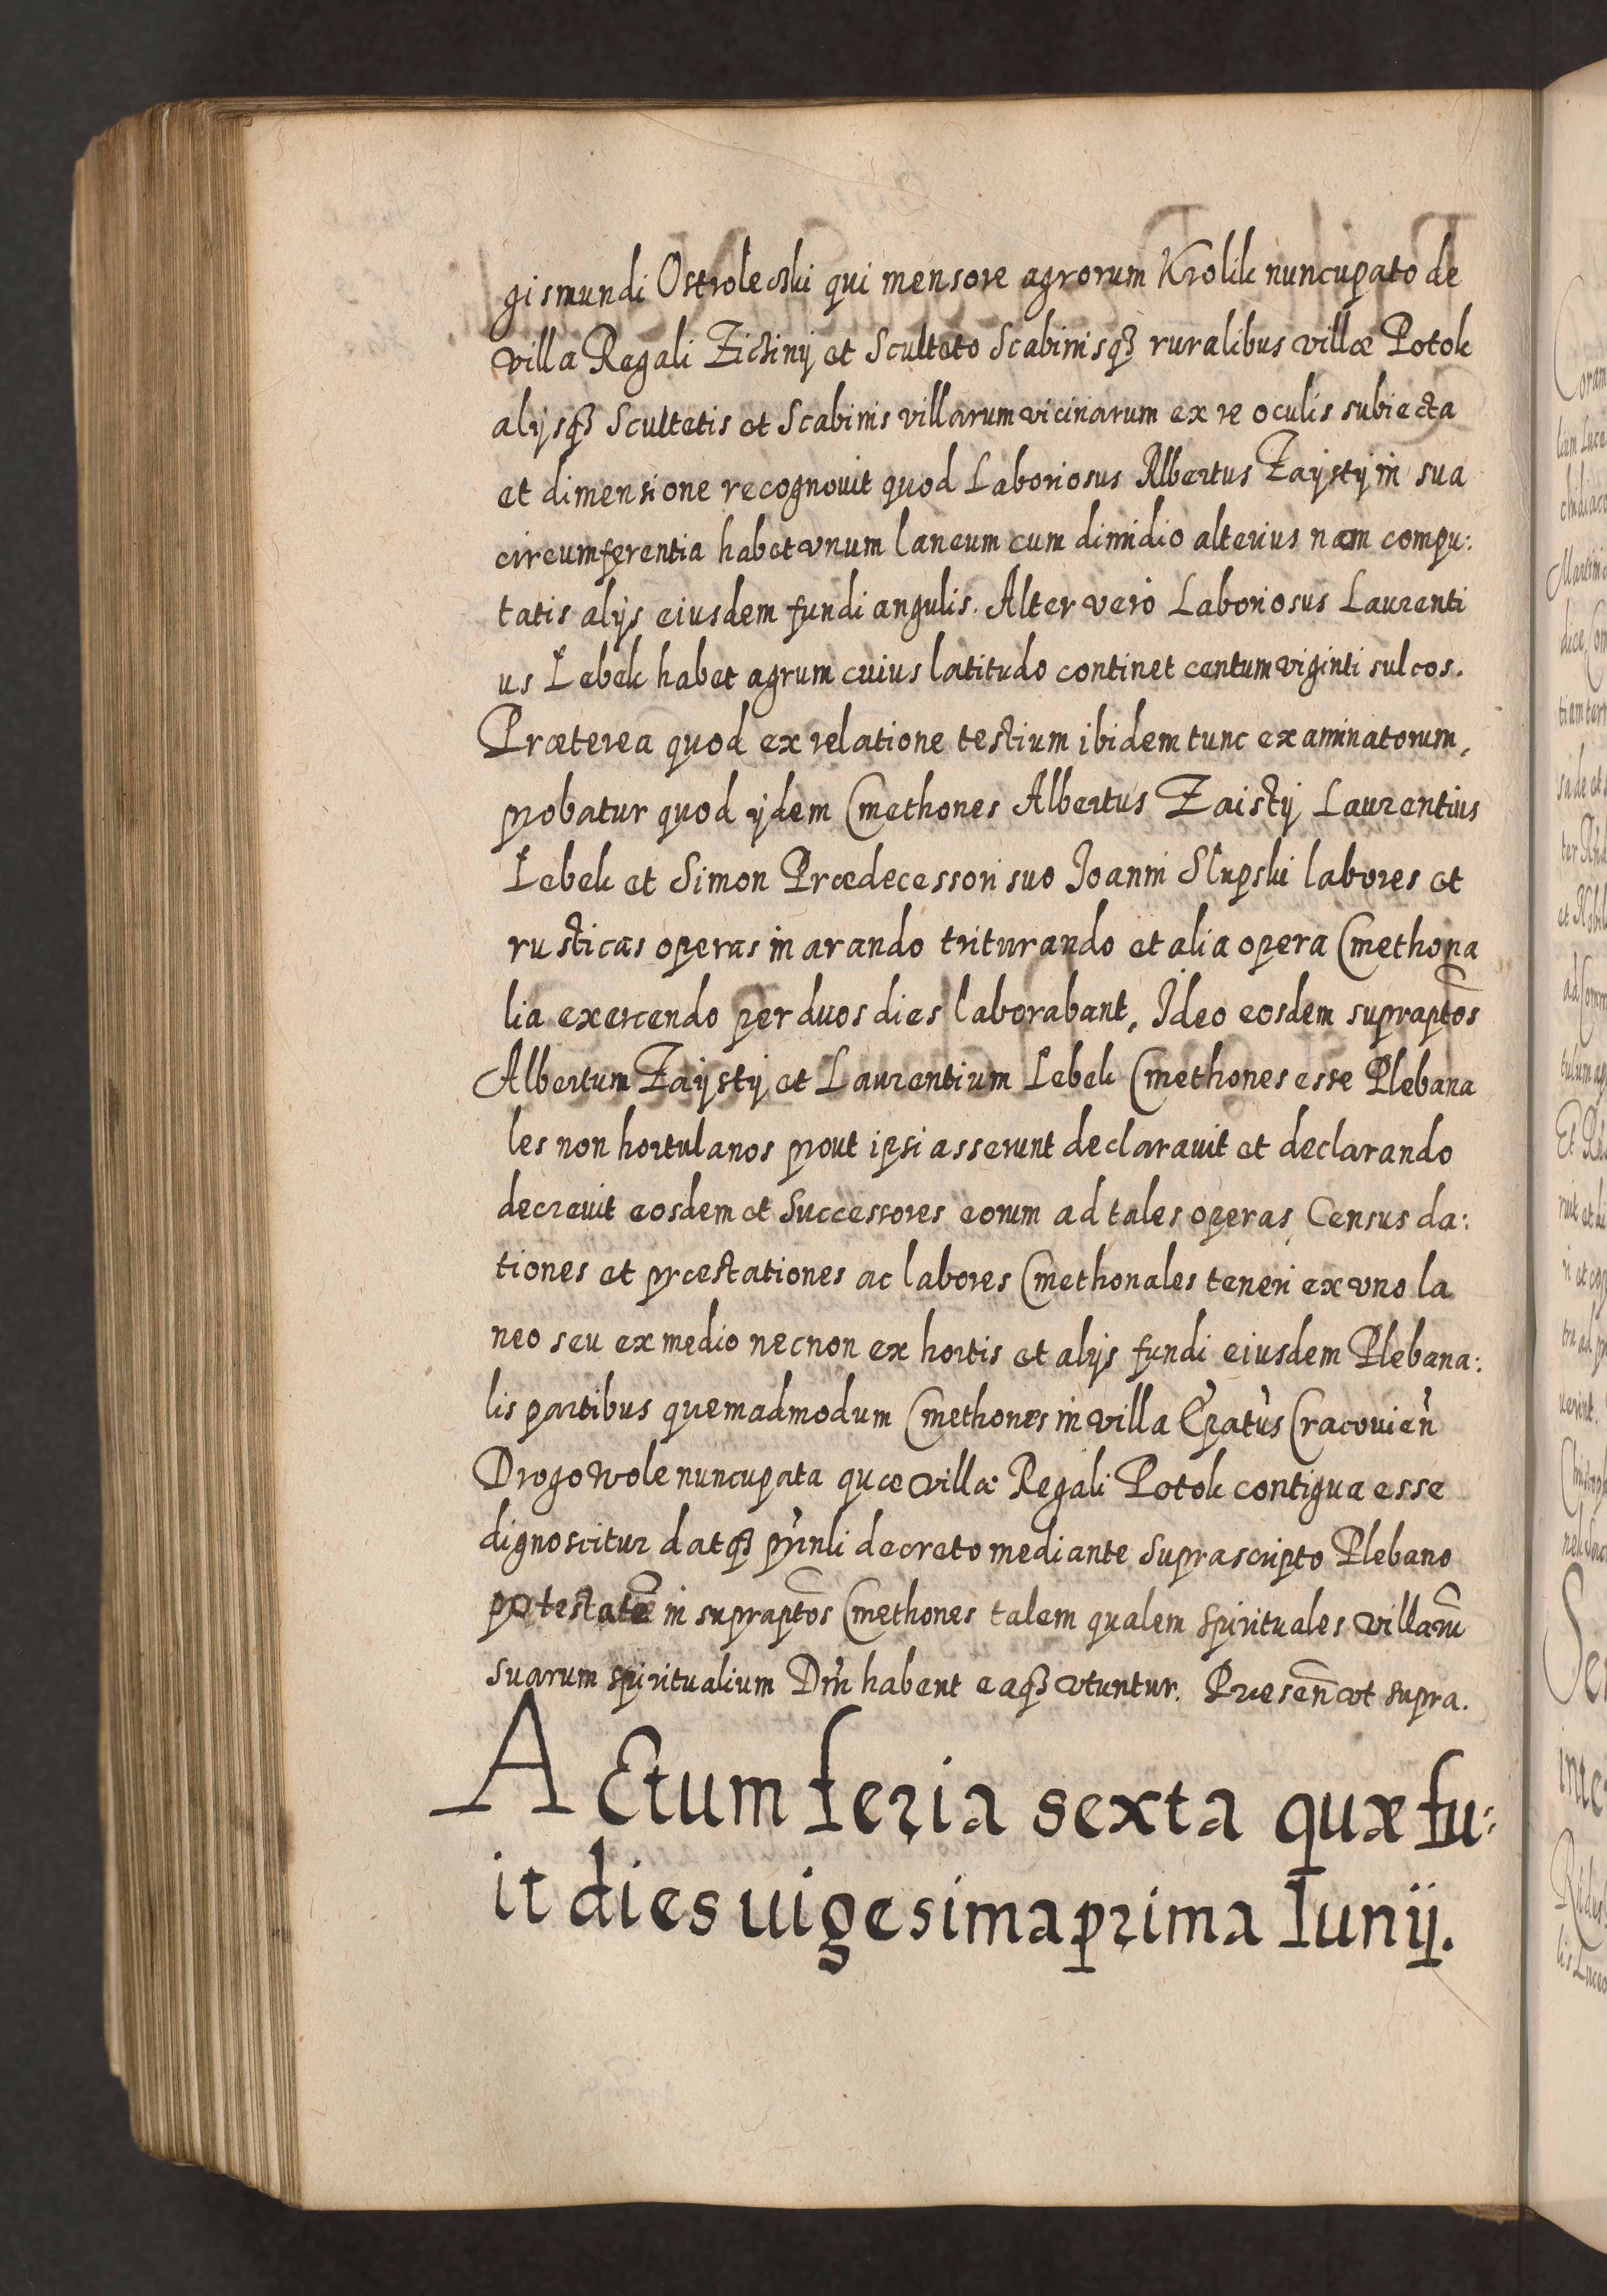 gismundi Ostrolecski qui mensore agrorum Krolik nuncupato de
villa Regali et Sculteto Scabinisqꝫ ruralibus villæ Potok
alijsqꝫ Scultetis et Scabinis villarum vicinarum ex re oculis subiecta
et dimensione recognovit quod Laboriosus Albertus Zaysty in sua
circumferentia habet vnum laneum cum dimidio alterius nam compu:
tatis alijs eiusdem fundi angulis. Alter verò Laboriosus Laurenti
us Łebek habet agrum cuius latitudo continet centum viginti sulcos.
Præterea quod ex relatione testium ibidem tunc examinatorum,
probatur quod ijdem Cmethones Albertus Zaisty Laurentius
Łebek et Simon Prædecessori suo Joanni Słupski labores et
rusticas operas in arando triturando et alia opera Cmethona
lia exercendo per duos dies laborabant, Ideo eosdem supraptos
Albertum Zaysty et Laurentium Łebek Cmethones esse Plebana
les non hortulanos prout ipsi asserunt declarauit et declarando
decreuit eosdem et Successores eorum ad tales operas Census da:
tiones et præstationes ac labores Cmethonales teneri ex vno la
neo seu ex medio necnon ex hortis et alijs fundi eiusdem Plebana:
lis partibus quemadmodum Cmethones in villa Epatus Cracouien
Drogowole nuncupata quæ villæ Regali Potok contigua esse
dignoscitur datqꝫ decreto mediante suprascripto Plebano
potestatē in supraptos Cmethones talem qualem spirituales villarū
suarum spiritualium Dni habent eaqꝫ vtuntur. Præsen̄ vt supra.
Actum feria sexta quæ fu:
it dies uigesima prima Iunij.